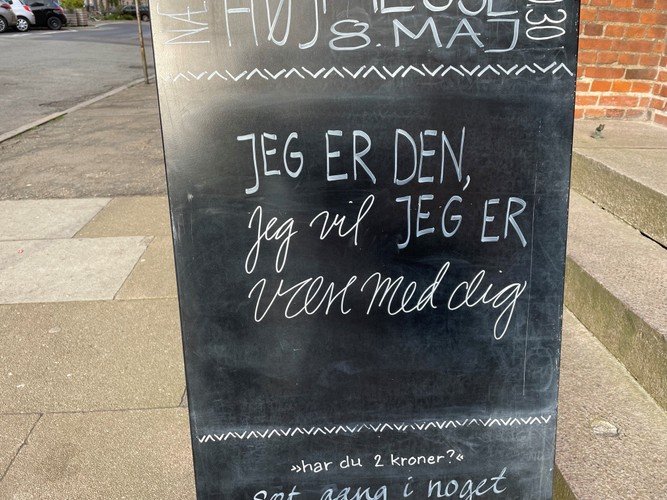 HØJMESSE
8. MAJ
JEG ER DEN,
jeg vil JEG ER
være med dig
»har du 2 kroner?«
Sæt gang i noget